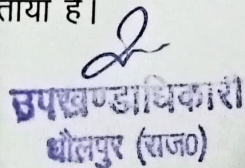 ताया है।
उपखण्डाधिकारी
धौलपुर (राज०)